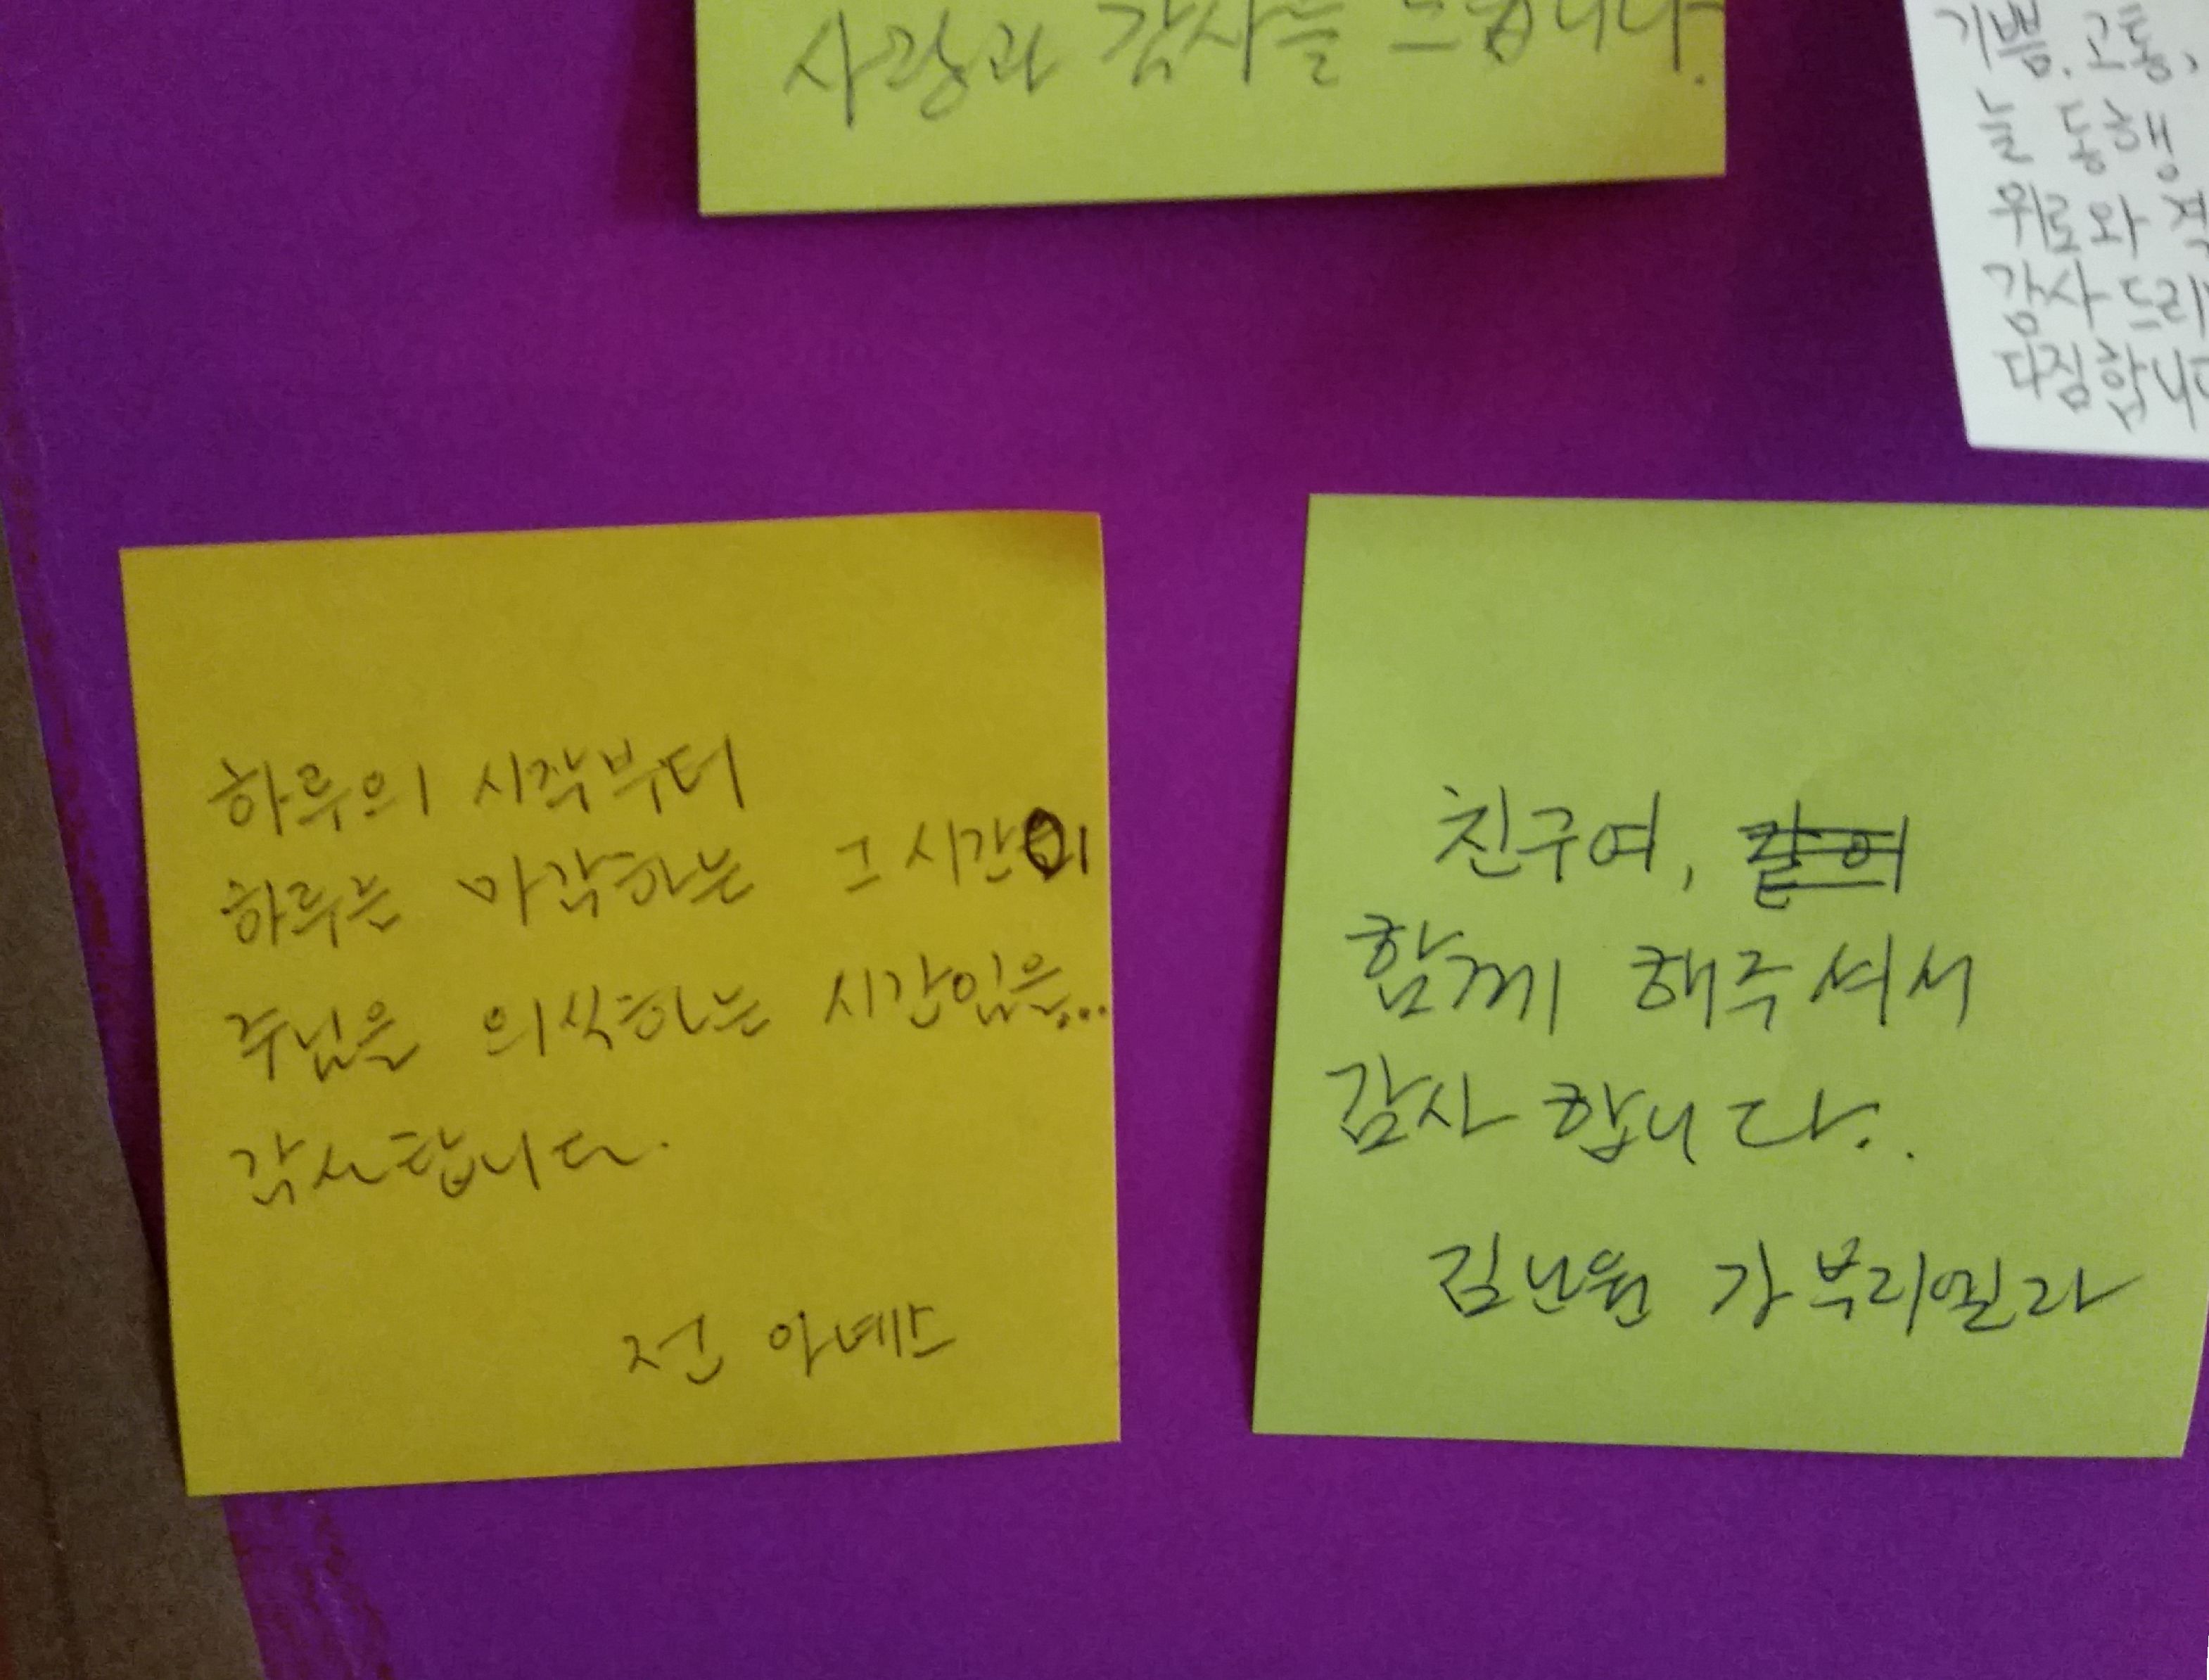 사랑과 감사를 드립니다.
기쁨. 고통,
늘 동행
위로와
감사드리
다짐합니다
하루의 시작부터
하루는 마감하는 그 시간이
주님을 의식하는 시간임을...
감사합니다.
전 아네스
친구여,
함께 해주셔서
감사 합니다.
김난원 가부리엘라